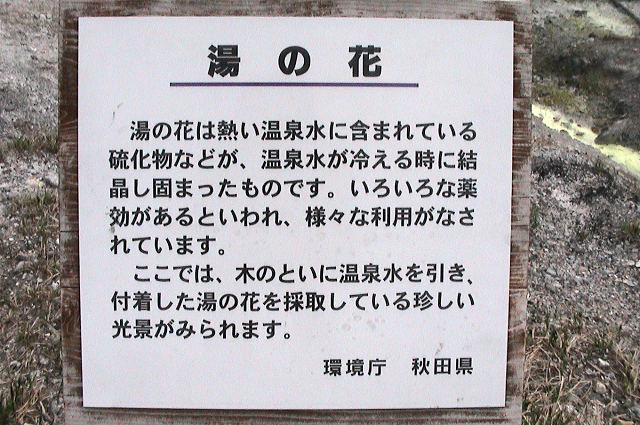 湯の花
湯の花は熱い温泉水に含まれている
硫化物などが、温泉水が冷える時に結
晶し固まったものです。いろいろな薬
効があるといわれ、様々な利用がなさ
れています。
ここでは、木のといに温泉水を引き、
付着した湯の花を採取している珍しい
光景がみられます。
環境庁 秋田県